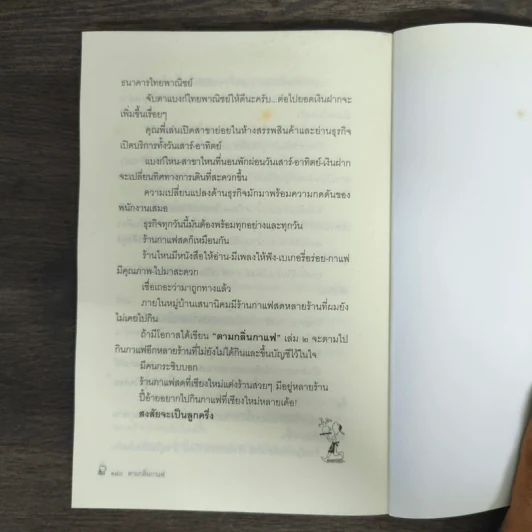 ธนาคารไทยพาณิชย์
จับตาแบงก์ไทยพาณิชย์ให้ดีนะครับ...ต่อไปยอดเงินฝากจะ
เพิ่มขึ้นเรื่อยๆ
คุณพี่เล่นเปิดสาขาย่อยในห้างสรรพสินค้าและย่านธุรกิจ
เปิดบริการทั้งวันเสาร์-อาทิตย์
แบงก์ไหน-สาขาไหนที่นอนพักผ่อนวันเสาร์-อาทิตย์-เงินฝาก
จะเปลี่ยนทิศทางการเดินที่สะดวกขึ้น
ความเปลี่ยนแปลงด้านธุรกิจมักมาพร้อมความกดดันของ
พนักงานเสมอ
ธุรกิจทุกวันนี้มันต้องพร้อมทุกอย่างและทุกวัน
ร้านกาแฟสดก็เหมือนกัน
ร้านไหนมีหนังสือให้อ่าน-มีเพลงให้ฟัง-เบเกอรี่อร่อย-กาแฟ
มีคุณภาพ-ไปมาสะดวก
เชื่อเถอะว่ามาถูกทางแล้ว
ภายในหมู่บ้านเสนานิคมมีร้านกาแฟสดหลายร้านที่ผมยัง
ไม่เคยไปกิน
ถ้ามีโอกาสได้เขียน "ตามกลิ่นกาแฟ" เล่ม ๒ จะตามไป
กินกาแฟอีกหลายร้านที่ไม่ยังไม่ได้กินและขึ้นบัญชีไว้ในใจ
มีคนกระซิบบอก
ร้านกาแฟสดที่เชียงใหม่แต่งร้านสวยๆ มีอยู่หลายร้าน
ปี้อ้ายอยากไปกินกาแฟที่เชียงใหม่หลายเด้อ!
สงสัยจะเป็นลูกครึ่ง
ตามกลิ่นกาแฟ